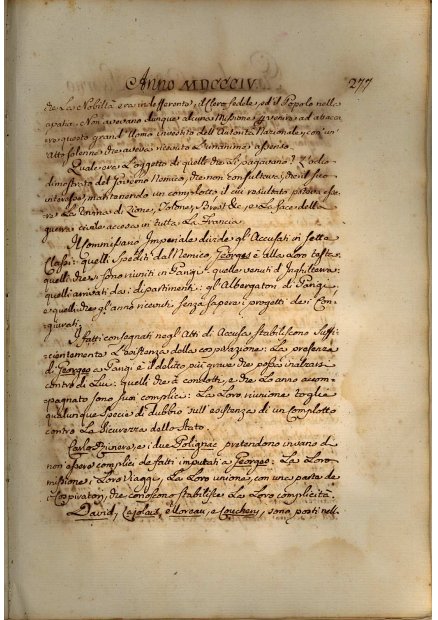 Anno MDCCCIV. 277
che La Nobiltà era indifferente, il Clero fedele, ed il Popolo nella
apatia. Non avevano dunque alcuna Missione per venire ad attacca
re questo grand'Uomo investito dell'Autorità Nazionale, con un'
atto solenne che aveva ricevuto L'unanime assenso.
Quale era L'oggetto di quelli che Li pagavano? L'odio
dimostrato del Governo Nemico, che non consultava, che il suo
interesse, mantenendo un complotto il cui resultato poteva esse
re La rovina di Lione, Tolone, Brest &c., e La face della
guerra civile accesa in tutta La Francia.
Il Commissario Imperiale divide gl'Accusati in sette
Classi: Quelli spediti dal Nemico, Georges è alla Loro testa:
quelli che si sono riuniti in Parigi: quelli venuti d'Inghilterra:
quelli arrivati dai dipartimenti: gl'Albergatori di Parigi,
e quelli che gl'anno ricevuti senza sapere i progetti dei Con-
giurati.
I fatti consegnati negl'Atti di Accusa stabiliscono suffi-
cientemente L'esistenza della cospirazione: La presenza
di Georges a Parigi è il delitto più grave che possa intentarsi
contro di Lui: quelli che à condotti, e che Lo anno accom-
pagnato sono suoi complici: La Loro riunione toglie
qualunque specie di dubbio sull'esistenza di un Complotto
contro La Sicurezza dello Stato.
Carlo Riviere, e i due Polignac pretendono invano di
non essere complici de fatti imputati a Georges: La Loro
missione, i Loro viaggi, La Loro unione, con una parte de
i Cospiratori, che conoscono stabilisce La Loro complicità.
David, Lajolais, e Moreau, e Couchery, sono posti nell-